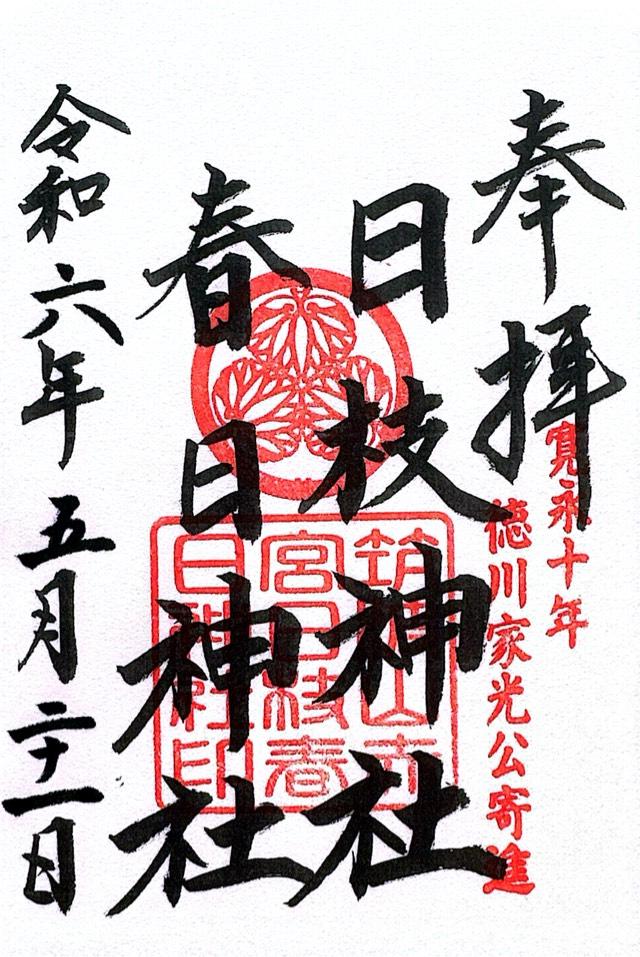 奉拝
寛永十年
徳川家光公寄進
日枝神社
春日神社
令和六年五月二十一日
筑波山
宮日枝春
日神社印